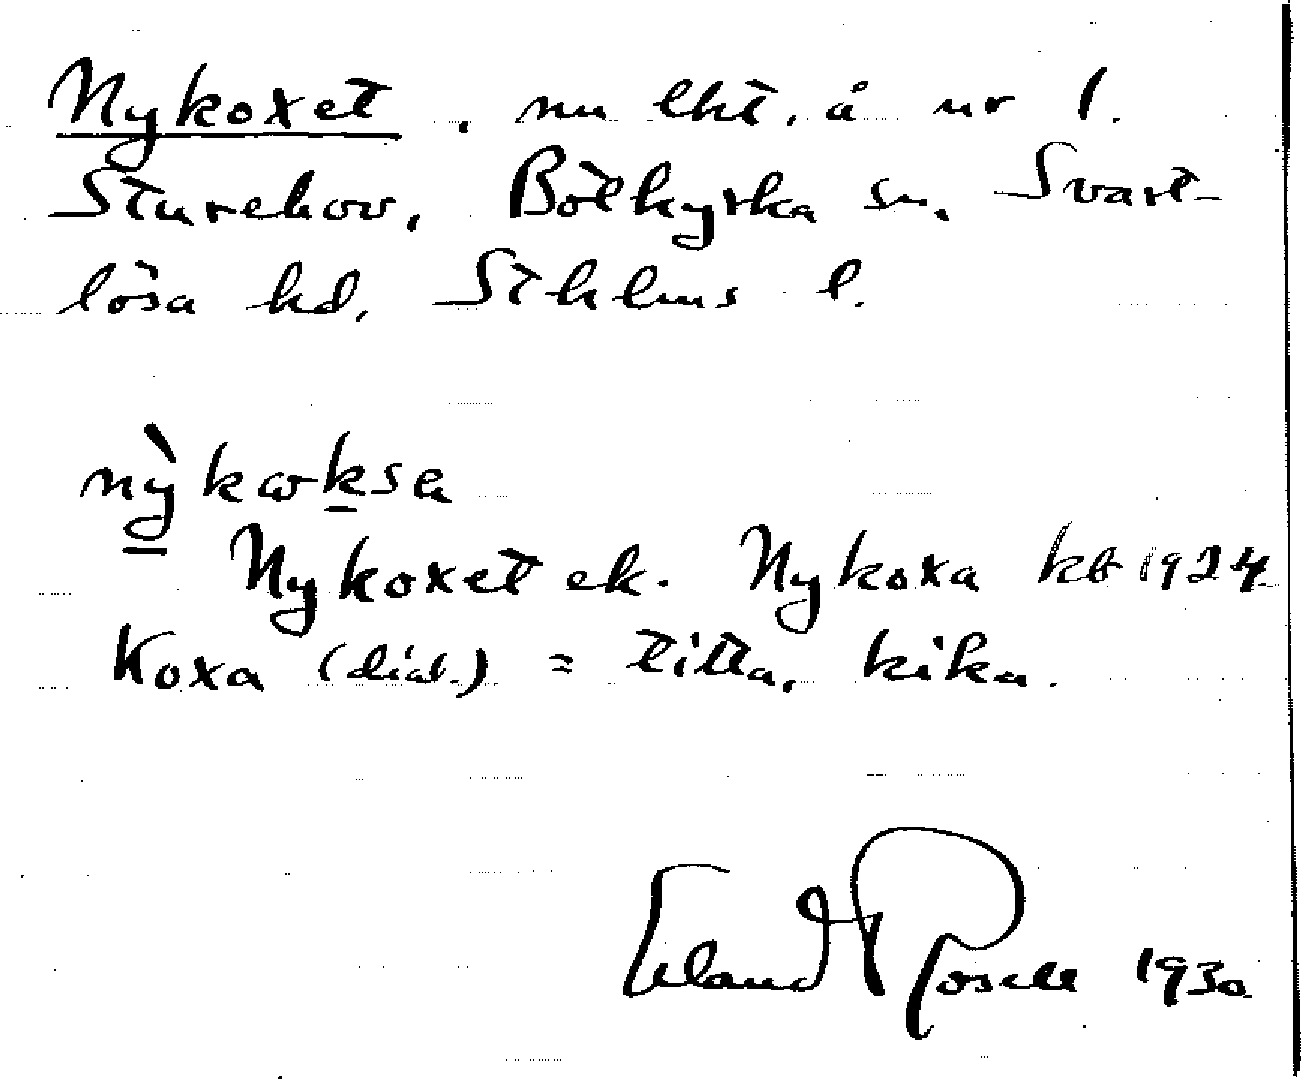 Nykoxet, nu lht. å nr 1.
Sturehov, Botkyrka sn. Svart-
lösa hd, Sthlms l.
nỳkωksa
Nykoxet ek. Nykoxa kb 1924
Koxa (dial.) = titta, kika.
Erland Rosell 1930